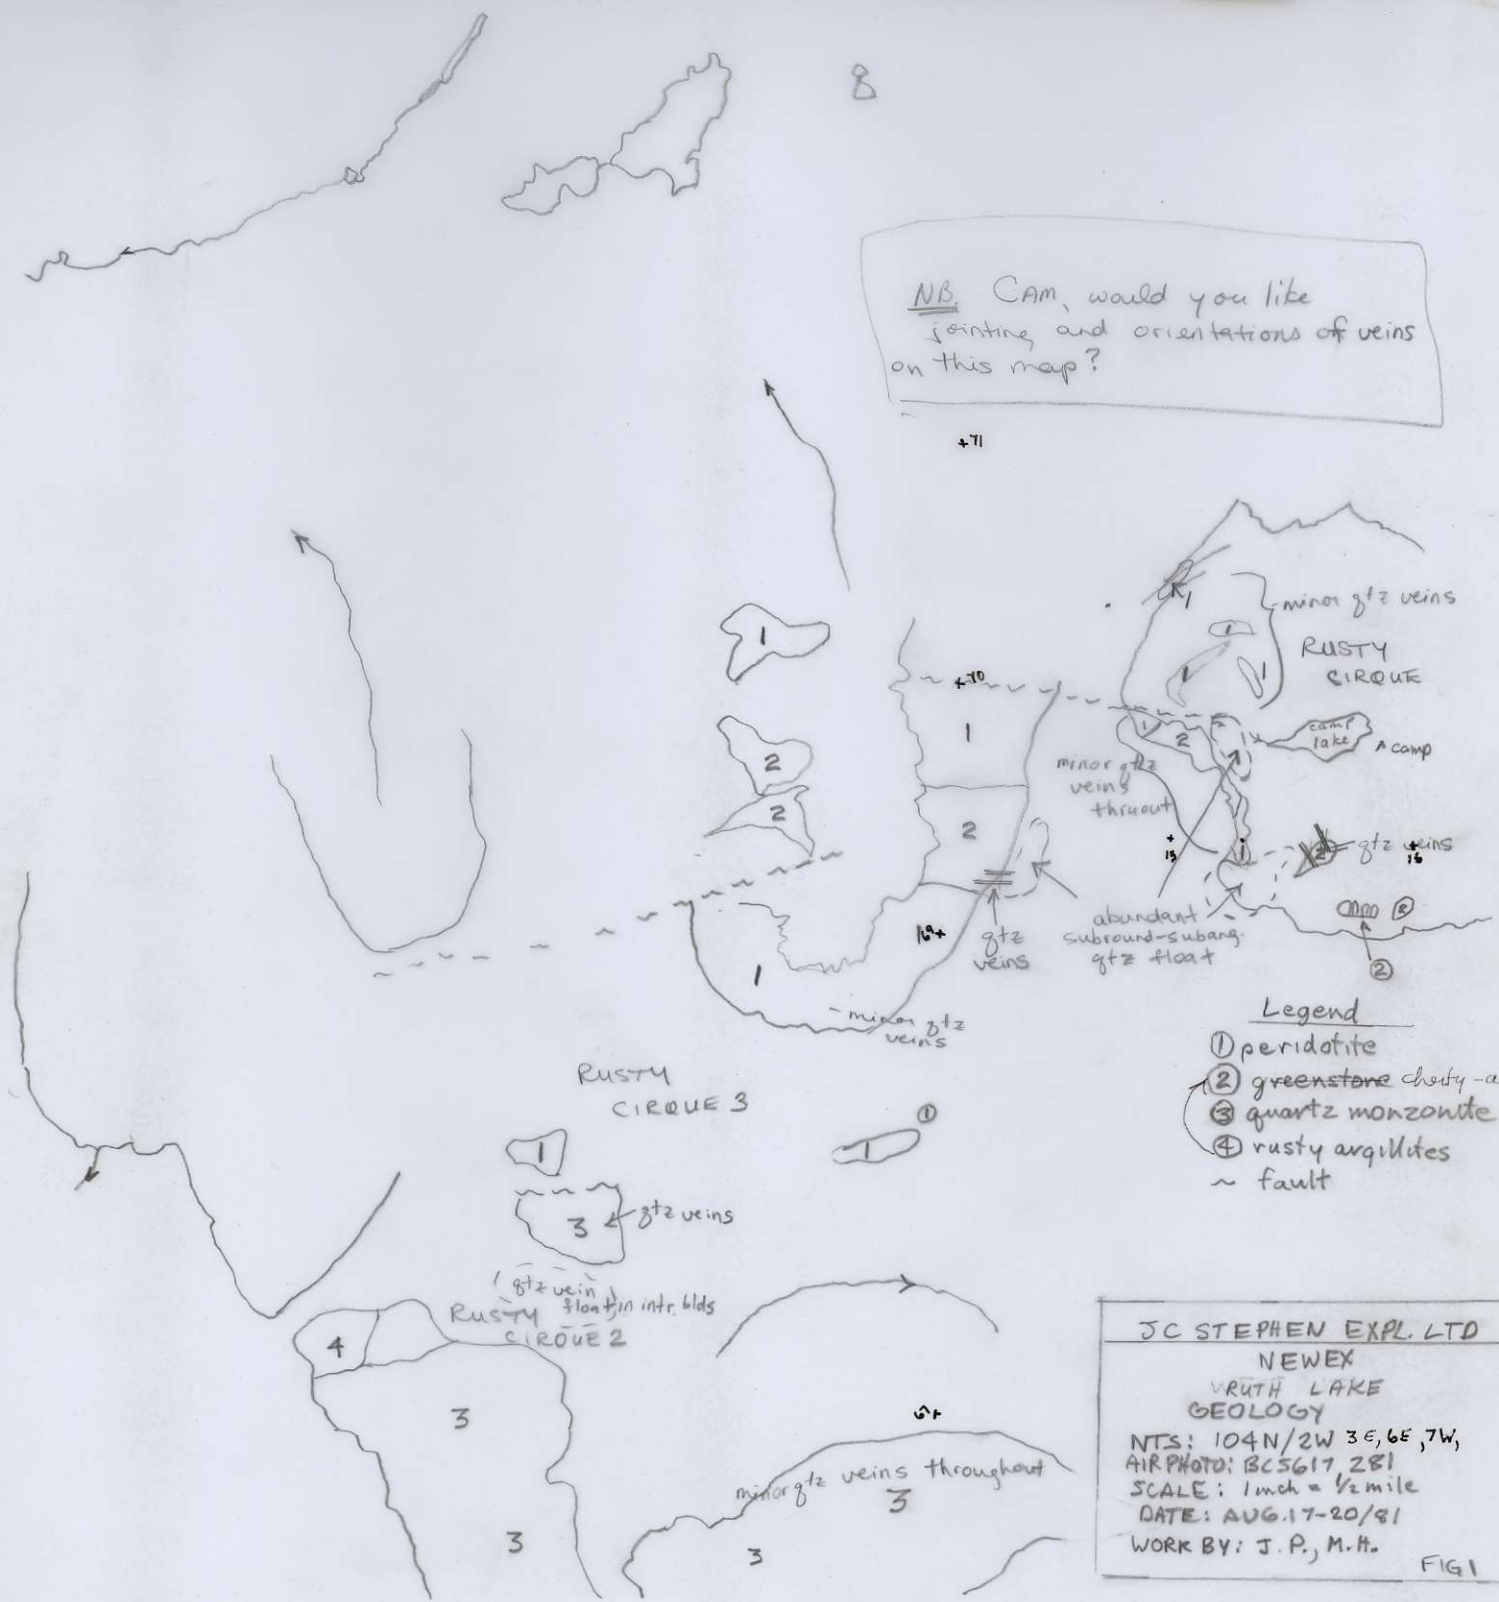 8
NB. CAM, would you like
jointing and orientations of veins
on this map?
+71
1
minor qtz veins
1
RUSTY
CIRQUE
1
1
1
+70
1
1
2
camp
lake
^ camp
2
minor qtz
veins
thruout
2
2
+
15
1
2
qtz veins
+
16
169+
qtz
veins
abundant
subround-subang.
qtz float
2
2
1
minor qtz
veins
Legend
1 peridotite
2 greenstone cherty-a
3 quartz monzonite
4 rusty argillites
~ fault
RUSTY
CIRQUE 3
1
1
1
3
qtz veins
qtz vein
float in intr. blds
RUSTY
CIRQUE 2
4
3
3
minor qtz veins throughout
3
3
JC STEPHEN EXPL. LTD
NEWEX
RUTH LAKE
GEOLOGY
NTS: 104N/2W 3E, 6E, 7W,
AIRPHOTO: BC5617, 281
SCALE: 1 inch = 1/2 mile
DATE: AUG. 17-20/81
WORK BY: J. P., M. H.
FIG 1